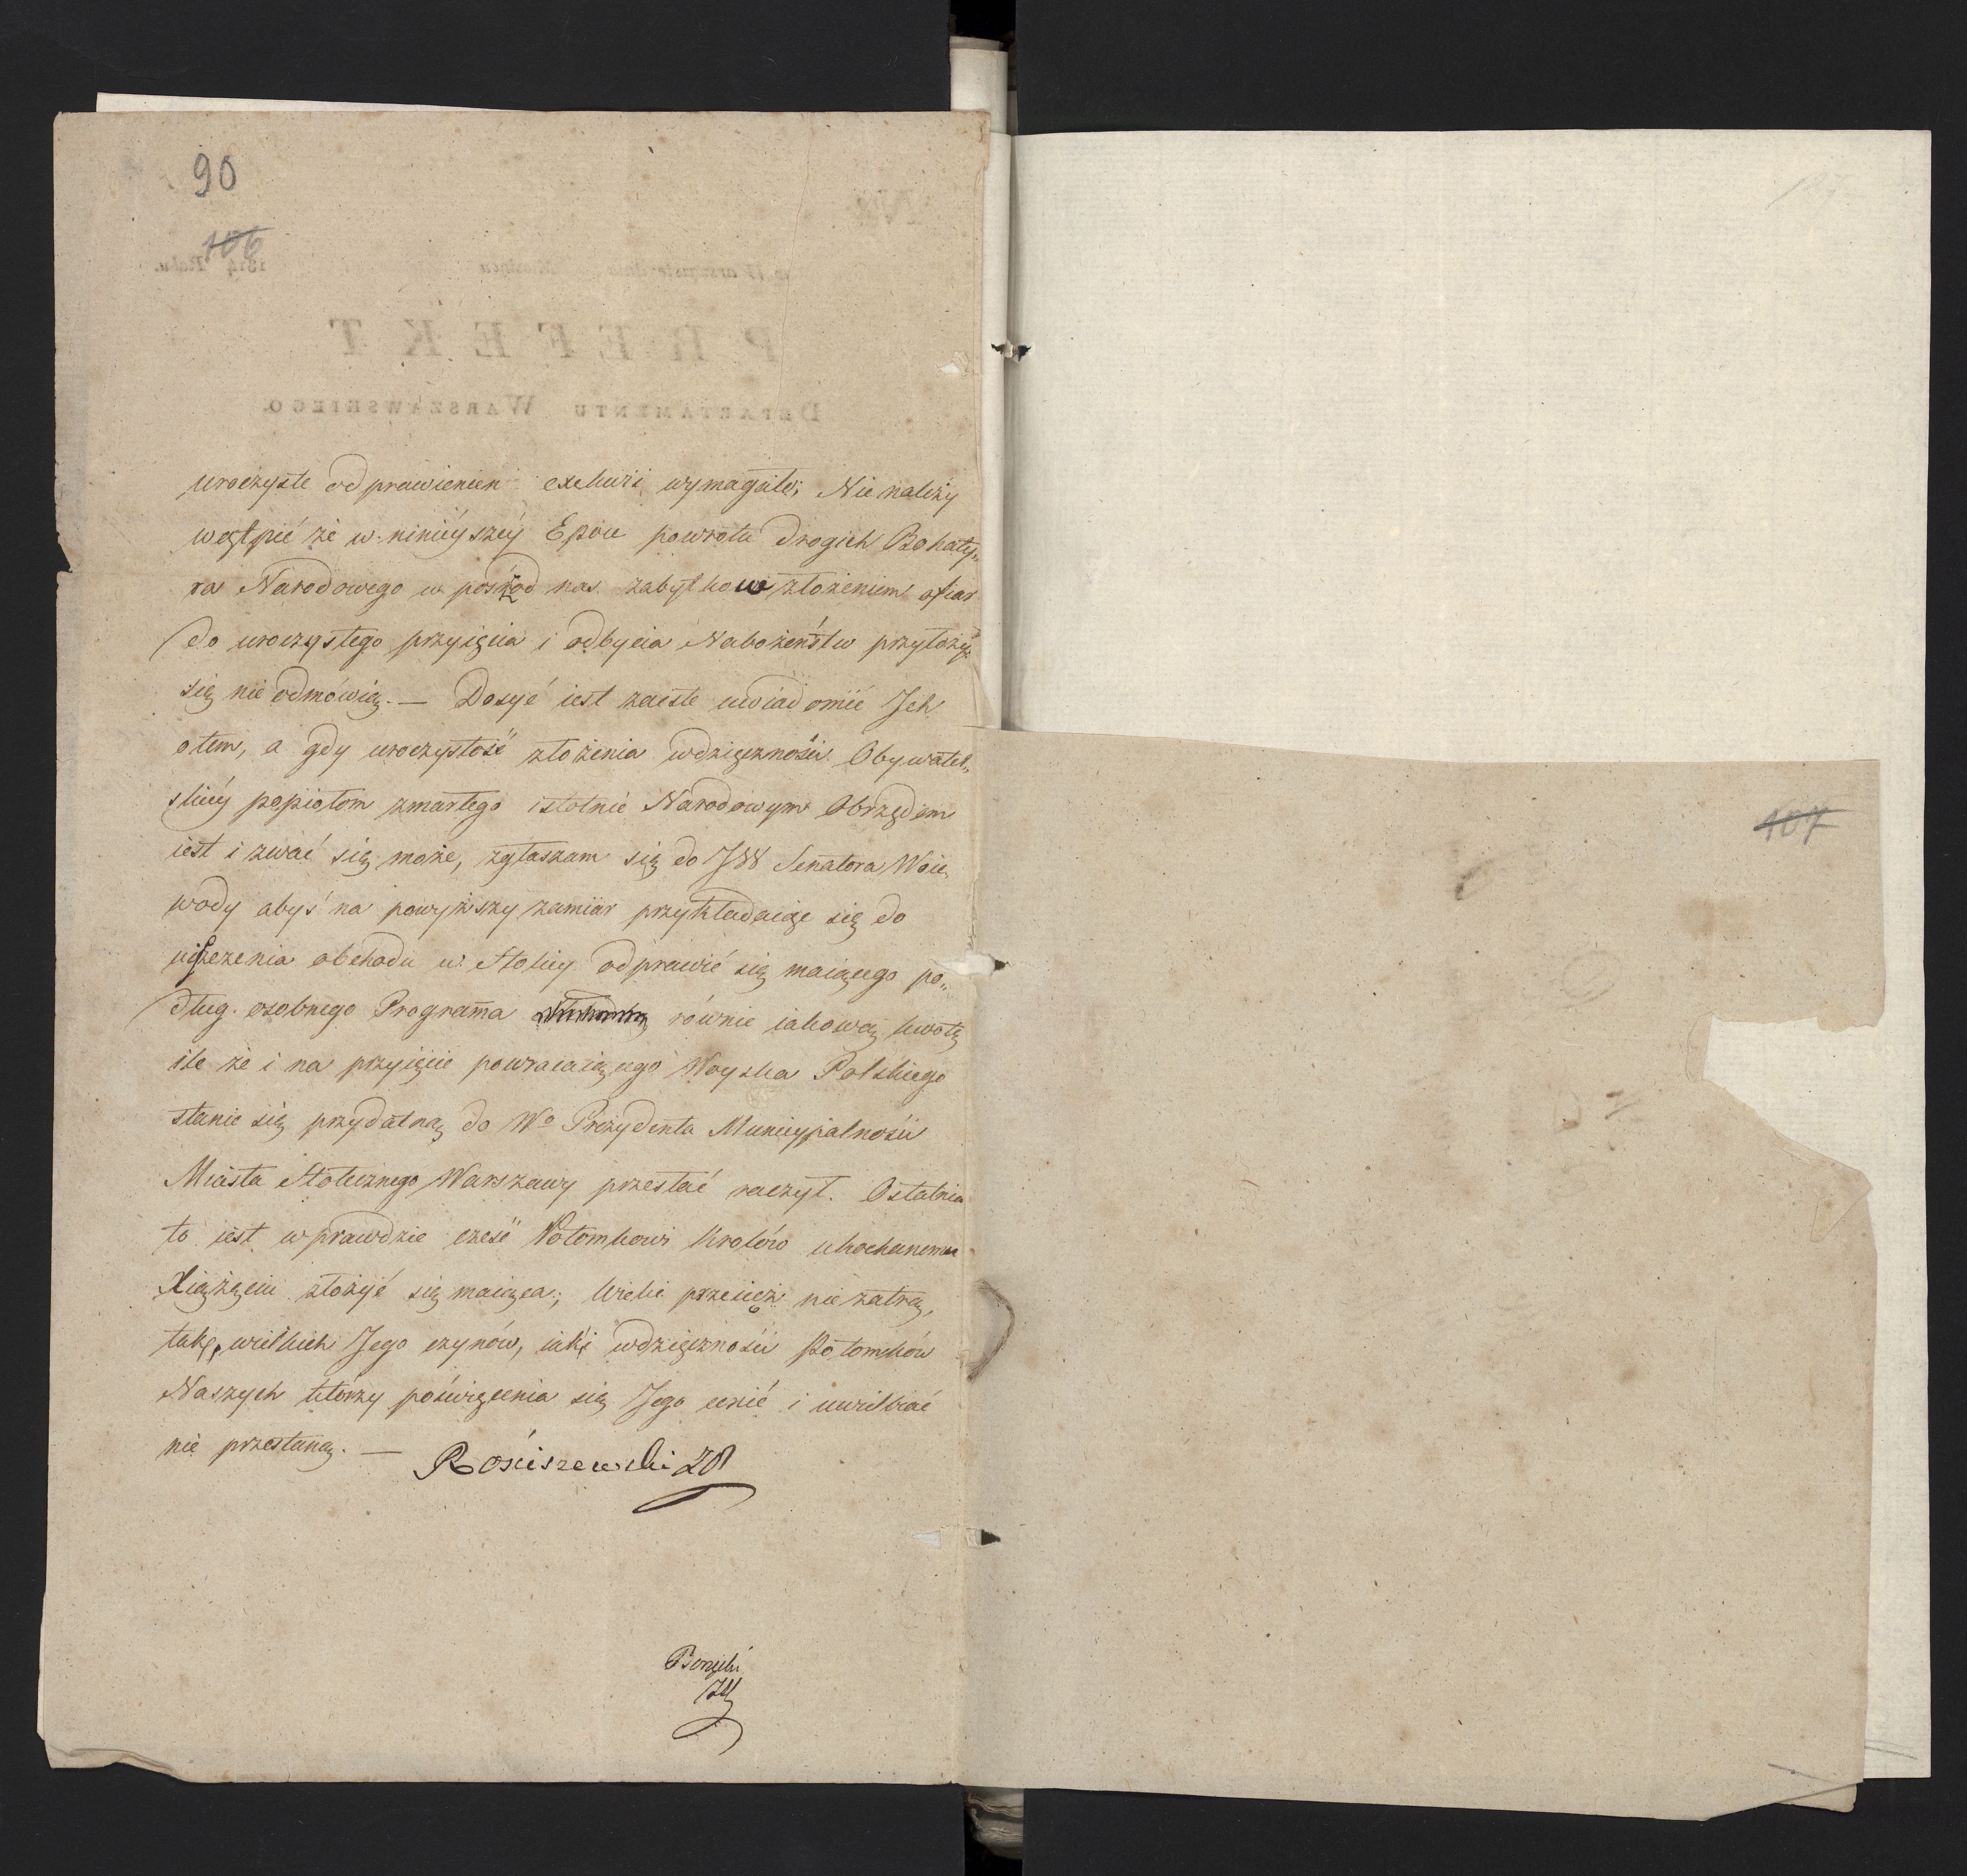 90
106
uroczyste odprawienien exekwii wymagało; Nienależy
wątpić że w ninieyszey Epoce powrotu drogich Bohaty„
ra Narodowego w pośrzod nas zabytkow złożeniem ofiar
do uroczystego przyięcia i odbycia Nabożeństw przyłożyć
się nie odmówią. — Dosyć iest zaiste uwiadomić Ich
otem, a gdy uroczystość złożenia wdzięczności Obywatel„
skiey popiołom zmarłego istotnie Narodowym Obrzędem
iest i zwać się może, zgłaszam się do JW Senatora Woie„
wody abyś na powyższy zamiar przykładaiąc się do
uiszczenia obchodu w Stolicy odprawić się maiącego po„
dług osobnego Programa równie iakową kwotę
ile że i na przyięcie powracaiącego Woyska Polskiego
stanie się przydatną do Wo Prezydenta Municypalności
Miasta Stołecznego Warszawy przesłać raczył. Ostatnia
to iest wprawdzie cześć Potomkowi Królów ukochanemu
Xiążęciu złożyć się maiąca; Wieki przecież nie zatrą,
takę, wielkich Jego czynów, iakę wdzięczności Potomków
Naszych którzy poświęcenia się Jego cenić i uwielbiać
nie przestaną. —
Rościszewski ZP
Borzęcki
107
PREFEKT
DEPARTAMENTU WARSZAWSKIEGO.
w Warszawie dnia Miesiąca 1814 Roku.
No